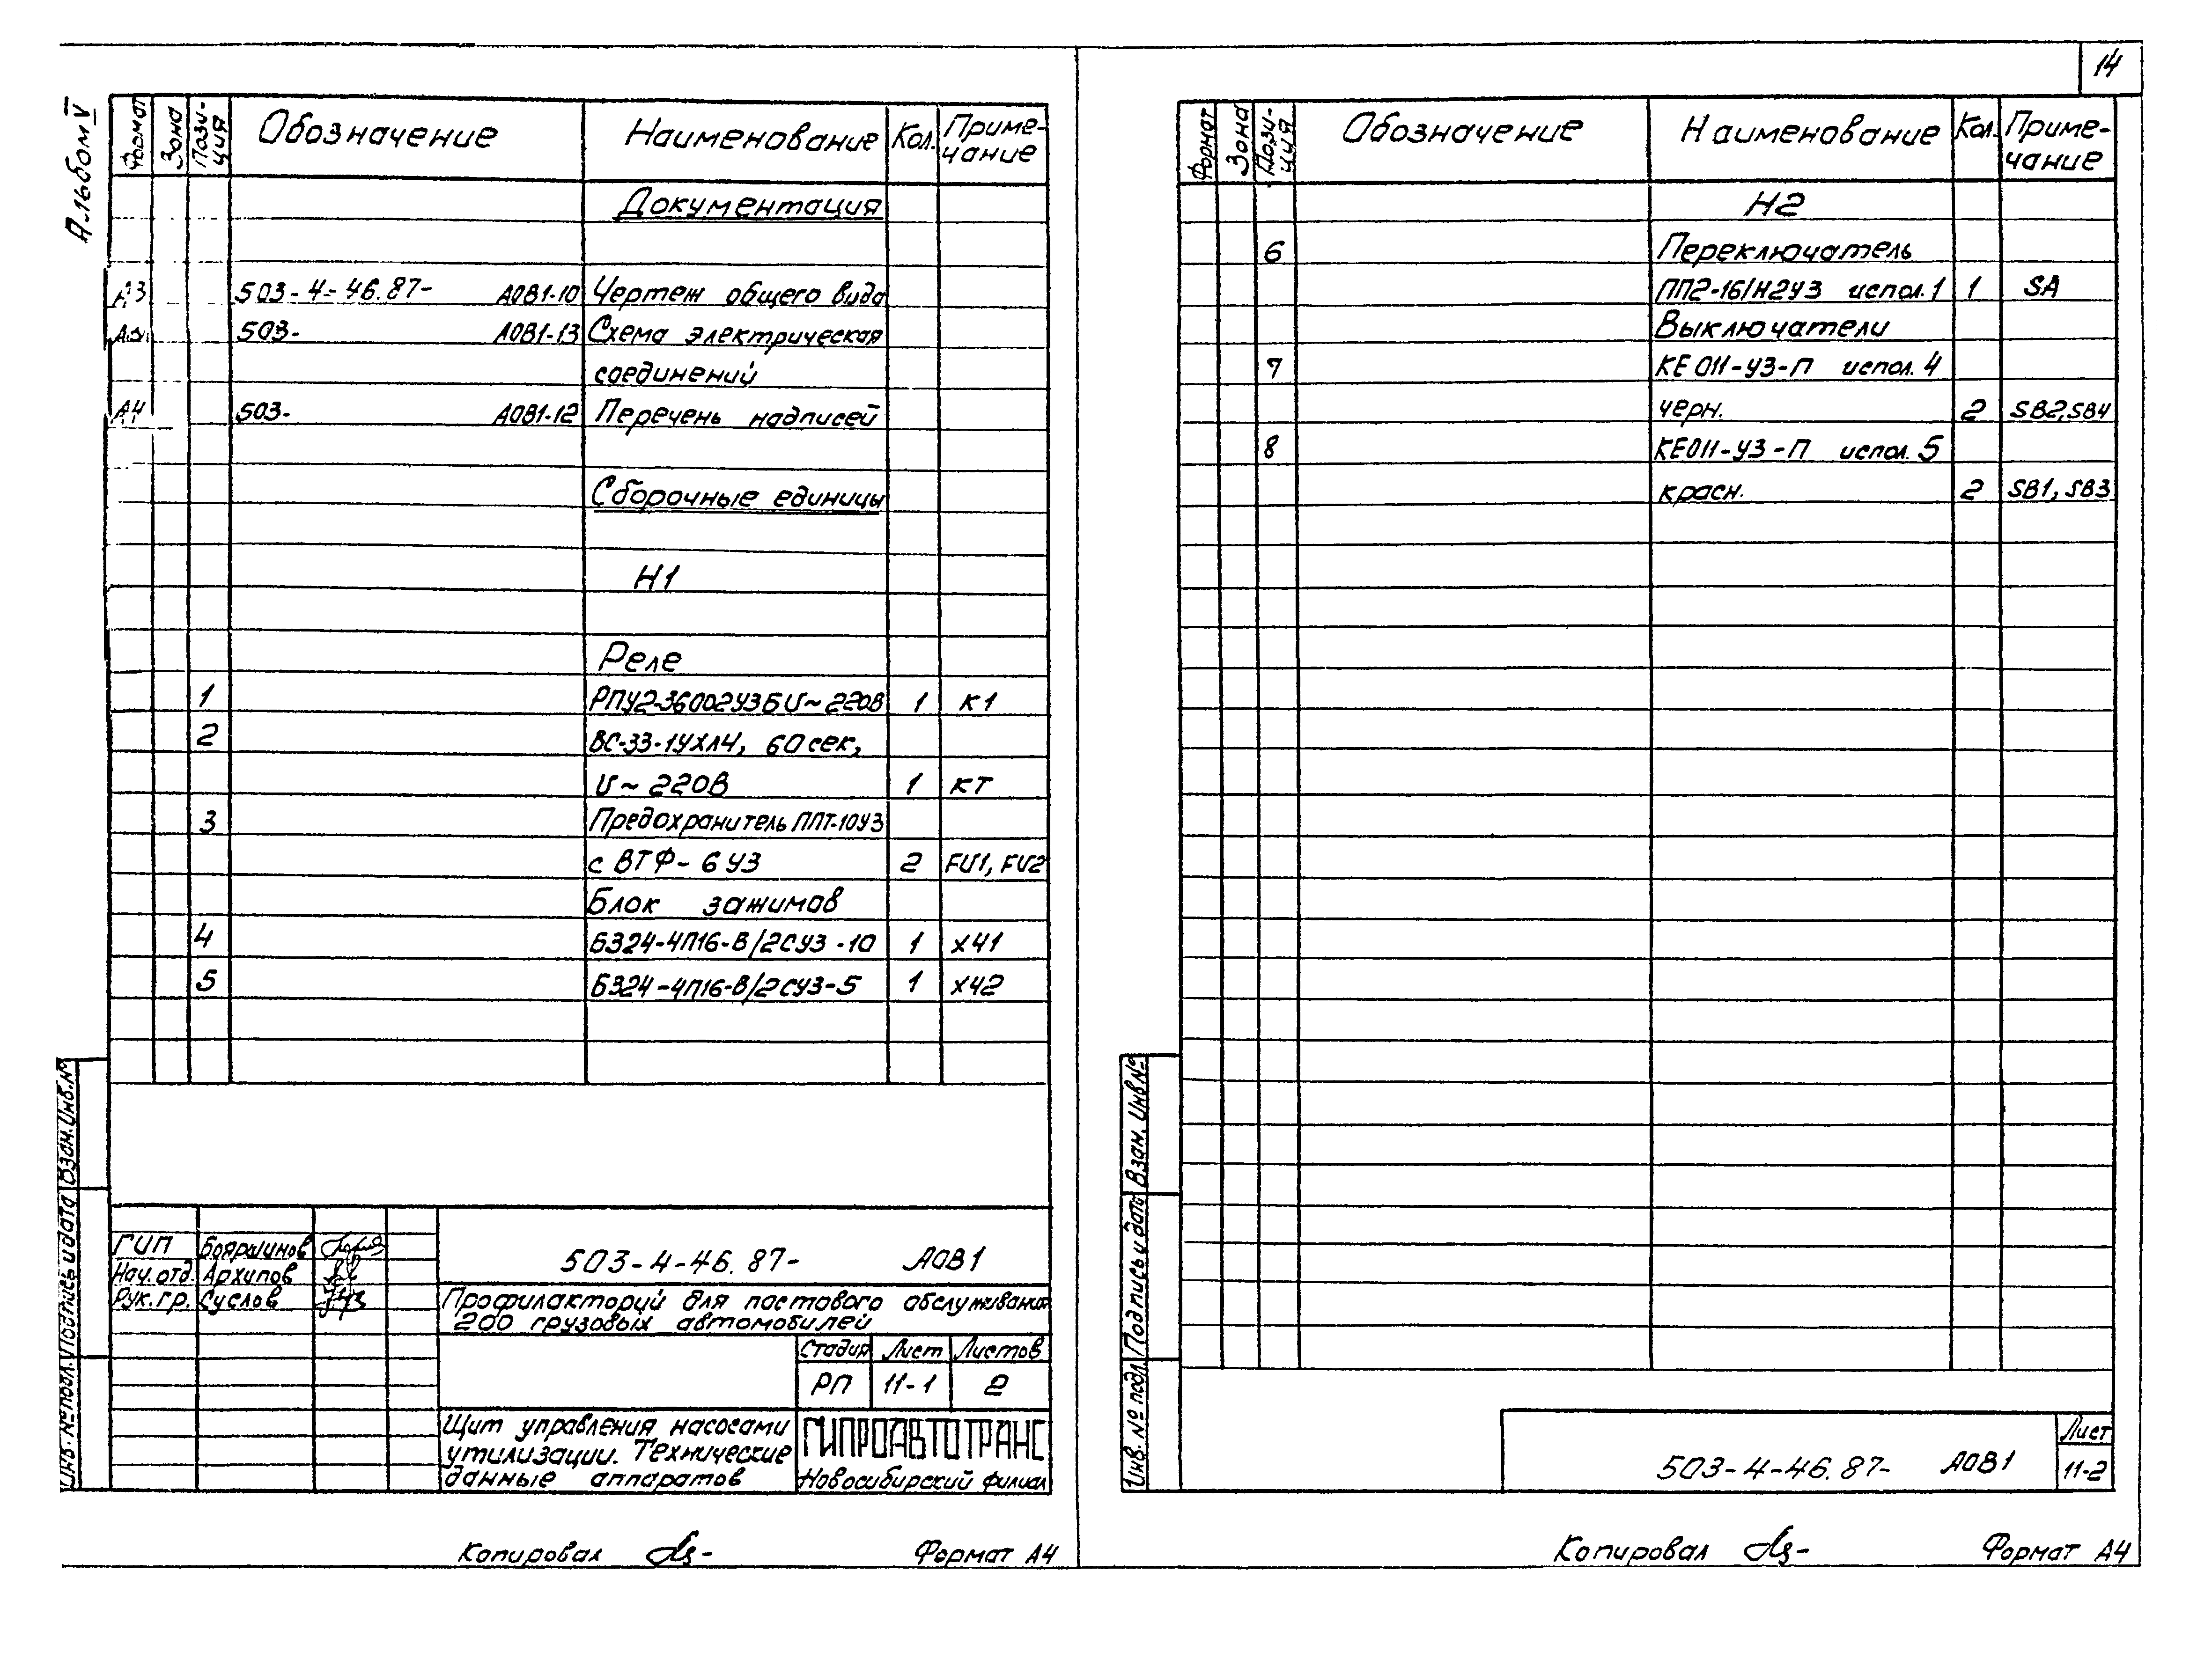 14
Альбом V
Формат Зона Пози-ция Обозначение Наименование Кол. Приме-чание
Документация
А3 503-4-46.87- АОВ1-10 Чертеж общего вида
503- АОВ1-13 Схема электрическая
соединений
А4 503- АОВ1-12 Перечень надписей
Сборочные единицы
Н1
Реле
1 РПУ2-36002У3Б U~220В 1 К1
2 ВС-33-1УХЛ4, 60 сек,
U~220В 1 КТ
3 Предохранитель ППТ-10У3
с ВТФ-6У3 2 FU1, FU2
Блок зажимов
4 БЗ24-4П16-В/2СУ3-10 1 ХЧ1
5 БЗ24-4П16-В/2СУ3-5 1 ХЧ2
Инв. № подл. Подпись и дата Взам. Инв. №
ГИП Бояршинов
Нач. отд. Архипов
Рук. гр. Суслов
503-4-46.87- АОВ1
Профилакторий для постового обслуживания
200 грузовых автомобилей
Стадия Лист Листов
РП 11-1 2
Щит управления насосами
утилизации. Технические
данные аппаратов
ГИПРОАВТОТРАНС
Новосибирский филиал
Копировал Формат А4
Формат Зона Пози-ция Обозначение Наименование Кол. Приме-чание
Н2
6 Переключатель
ПП2-16/Н2У3 испол. 1 1 SA
Выключатели
7 КЕ 011-У3-П испол. 4
черн. 2 SB2, SB4
8 КЕ011-У3-П испол. 5
красн. 2 SB1, SB3
Инв. № подл. Подпись и дата Взам. Инв №
503-4-46.87- АОВ1
Лист
11-2
Копировал Формат А4